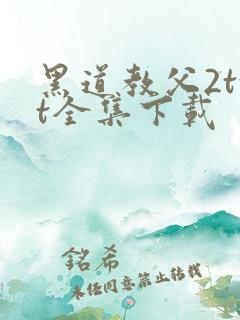 黑道教父2tx
t全集下载
銘希
未经同意禁止转载